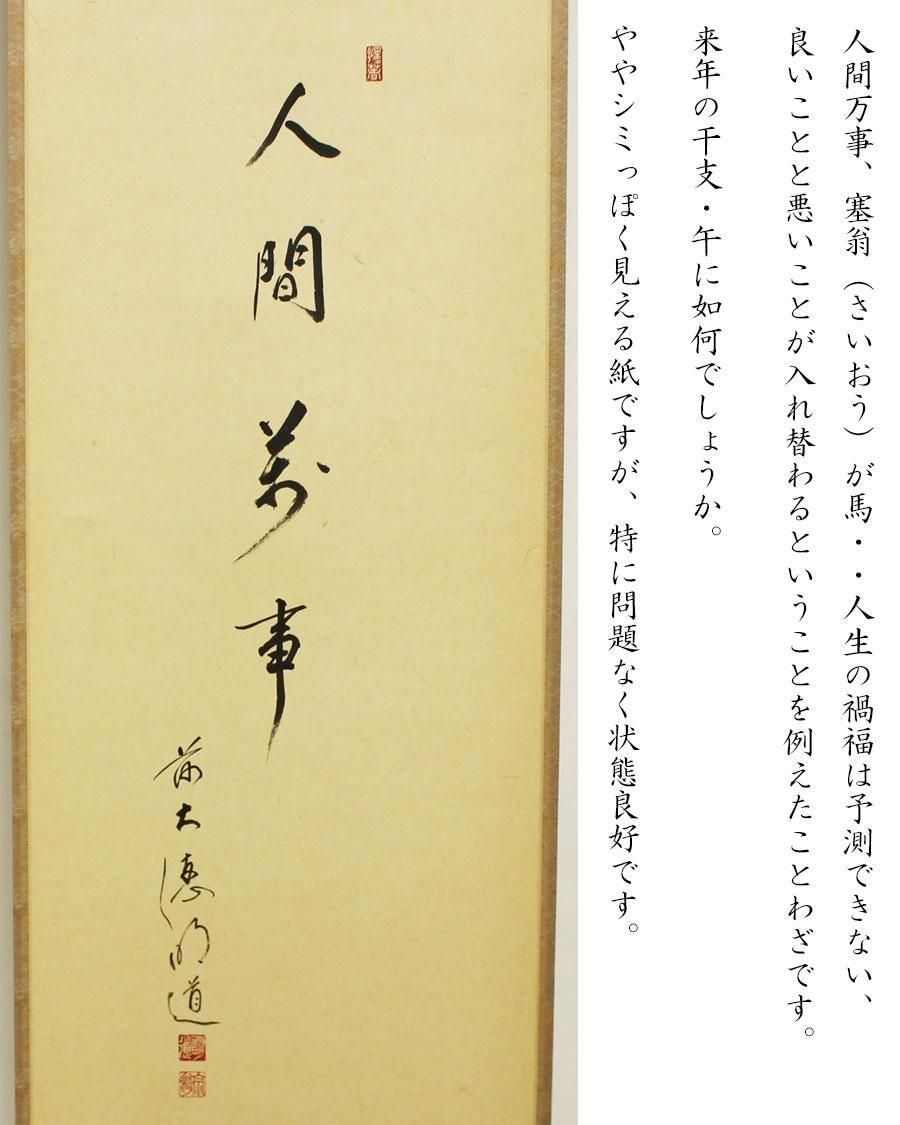 人間万事、塞翁(さいおう)が馬・・人生の禍福は予測できない、
良いことと悪いことが入れ替わるということを例えたことわざです。
来年の干支・午に如何でしょうか。
ややシミっぽく見える紙ですが、特に問題なく状態良好です。
人間萬事
前大徳明道